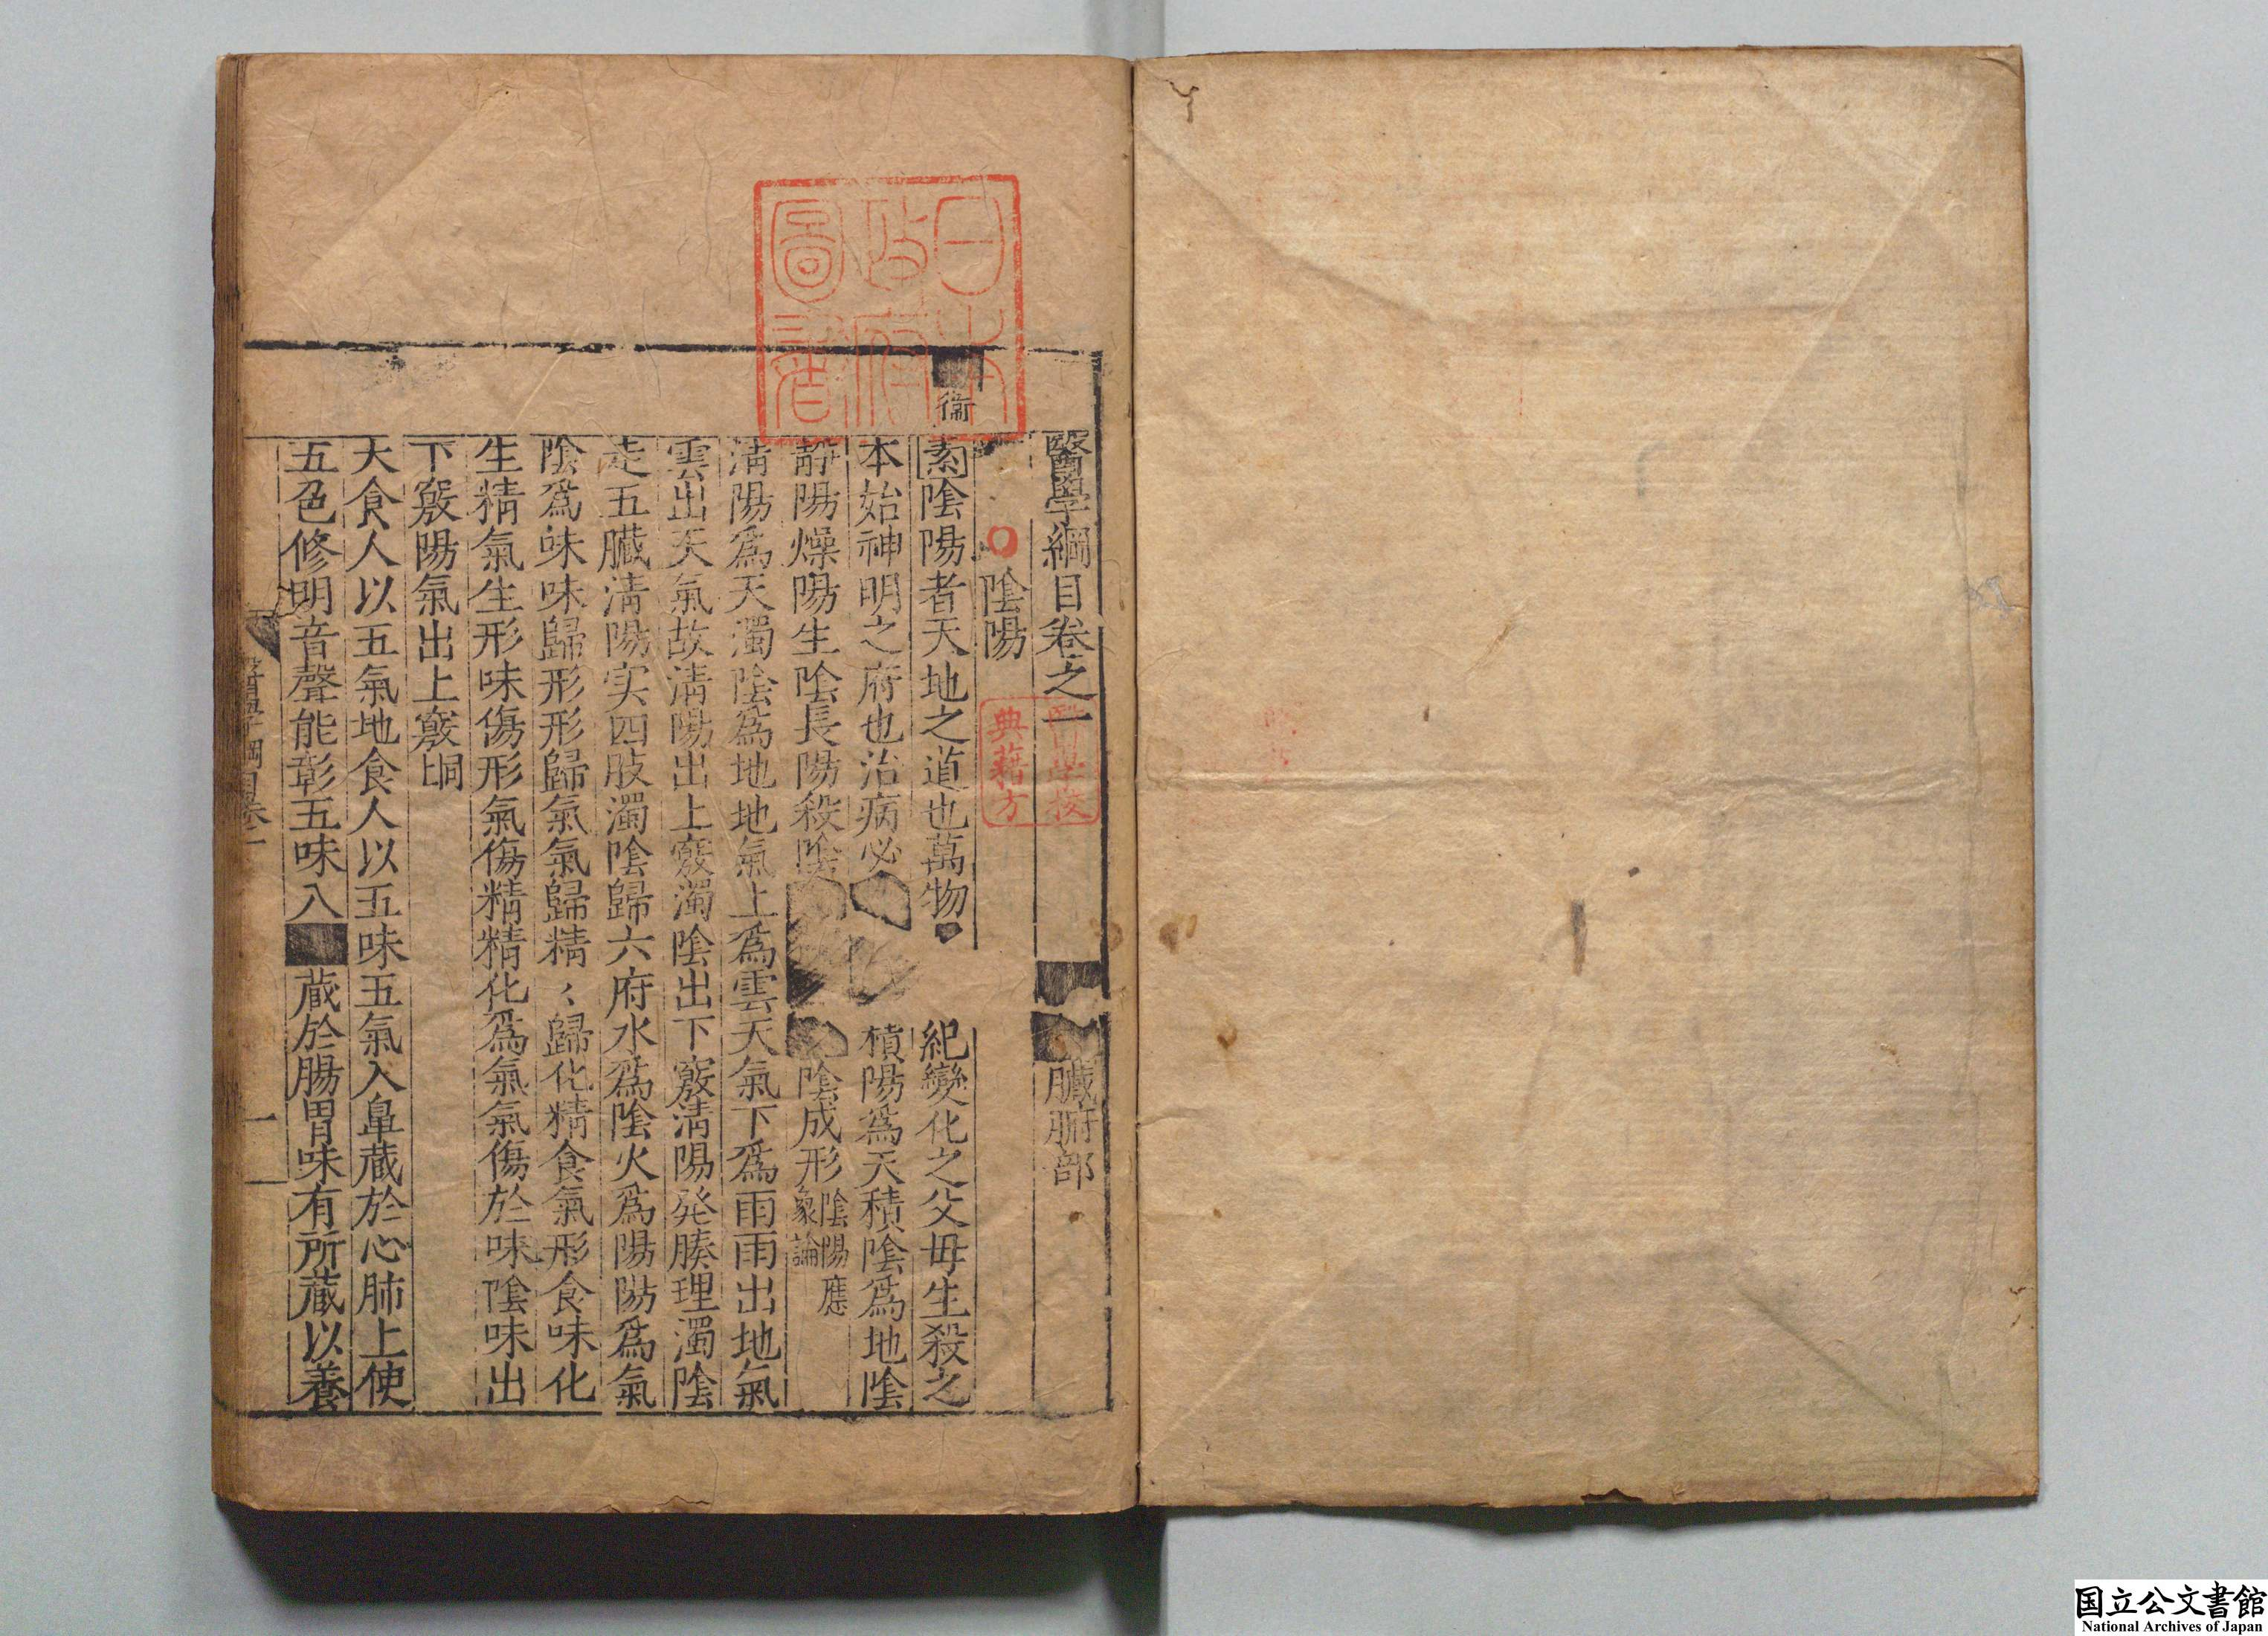 醫學綱目卷之一
臓腑部
陰陽
衞
素陰陽者天地之道也萬物
紀變化之父母生殺之
本始神明之府也治病必
積陽爲天積陰爲地陰
靜陽燥陽生陰長陽殺陰
陰成形陰陽應象論
清陽爲天濁陰爲地地氣上爲雲天氣下爲雨雨出地氣
雲出天氣故清陽出上竅濁陰出下竅清陽発腠理濁陰
走五臓清陽実四肢濁陰歸六府水爲陰火爲陽陽爲氣
陰爲味味歸形形歸氣氣歸精〻歸化精食氣形食味化
生精氣生形味傷形氣傷精精化爲氣氣傷於味陰味出
下竅陽氣出上竅上同
天食人以五氣地食人以五味五氣入鼻蔵於心肺上使
五色修明音聲能彰五味入
蔵於腸胃味有所蔵以養
醫學綱目卷之一
一
日本政府圖書
醫學校典籍方
国立公文書館
National Archives of Japan